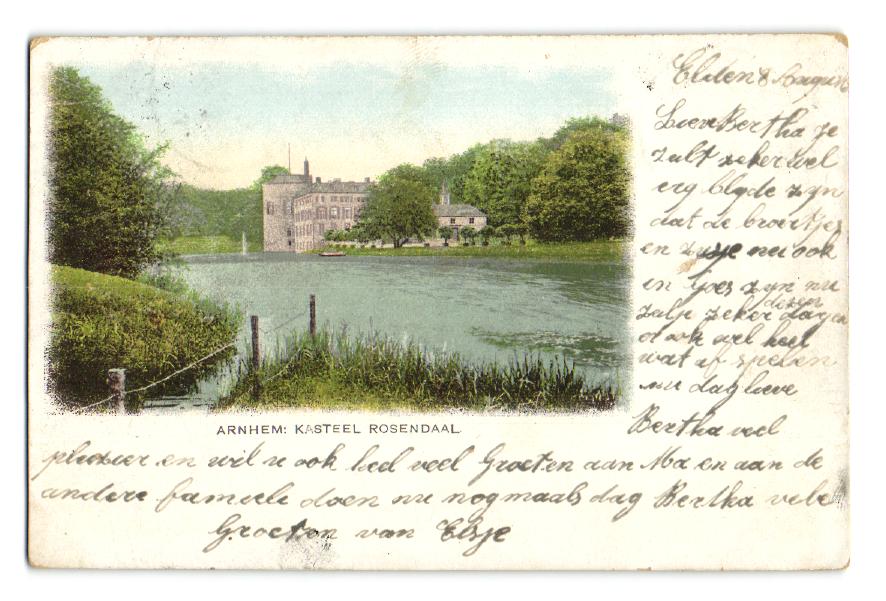 Elden 8 August
Lieve Bertha je
zult zeker wel
erg blyde zyn
dat de broertjes
en zusje nu ook
in zyn nu
zulje zeker dezen dagen
ook wel heel
wat af spelen
nu dag lieve
Bertha veel
ARNHEM: KASTEEL ROSENDAAL.
plezier en wil u ook heel veel Groeten aan Ma en aan de
andere famiele doen nu nogmaals dag Bertha vele
Groeten van Elsje